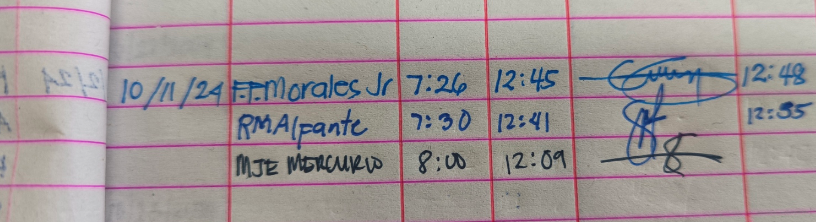 10/11/24 F.F. Morales Jr 7:26 12:45 12:48
RMAlpante 7:30 12:41 12:55
MJE MERCURIO 8:00 12:09